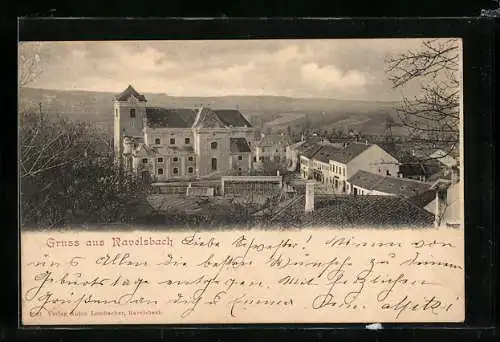 Gruss aus Ravelsbach Liebe Schwester! Nimm von
uns Allen die besten Wünsche zu deinem
Geburtstage entgegen. Mit herzlichen
Grüßen an dich u Emma
Verlag Anton Lambacher, Ravelsbach.